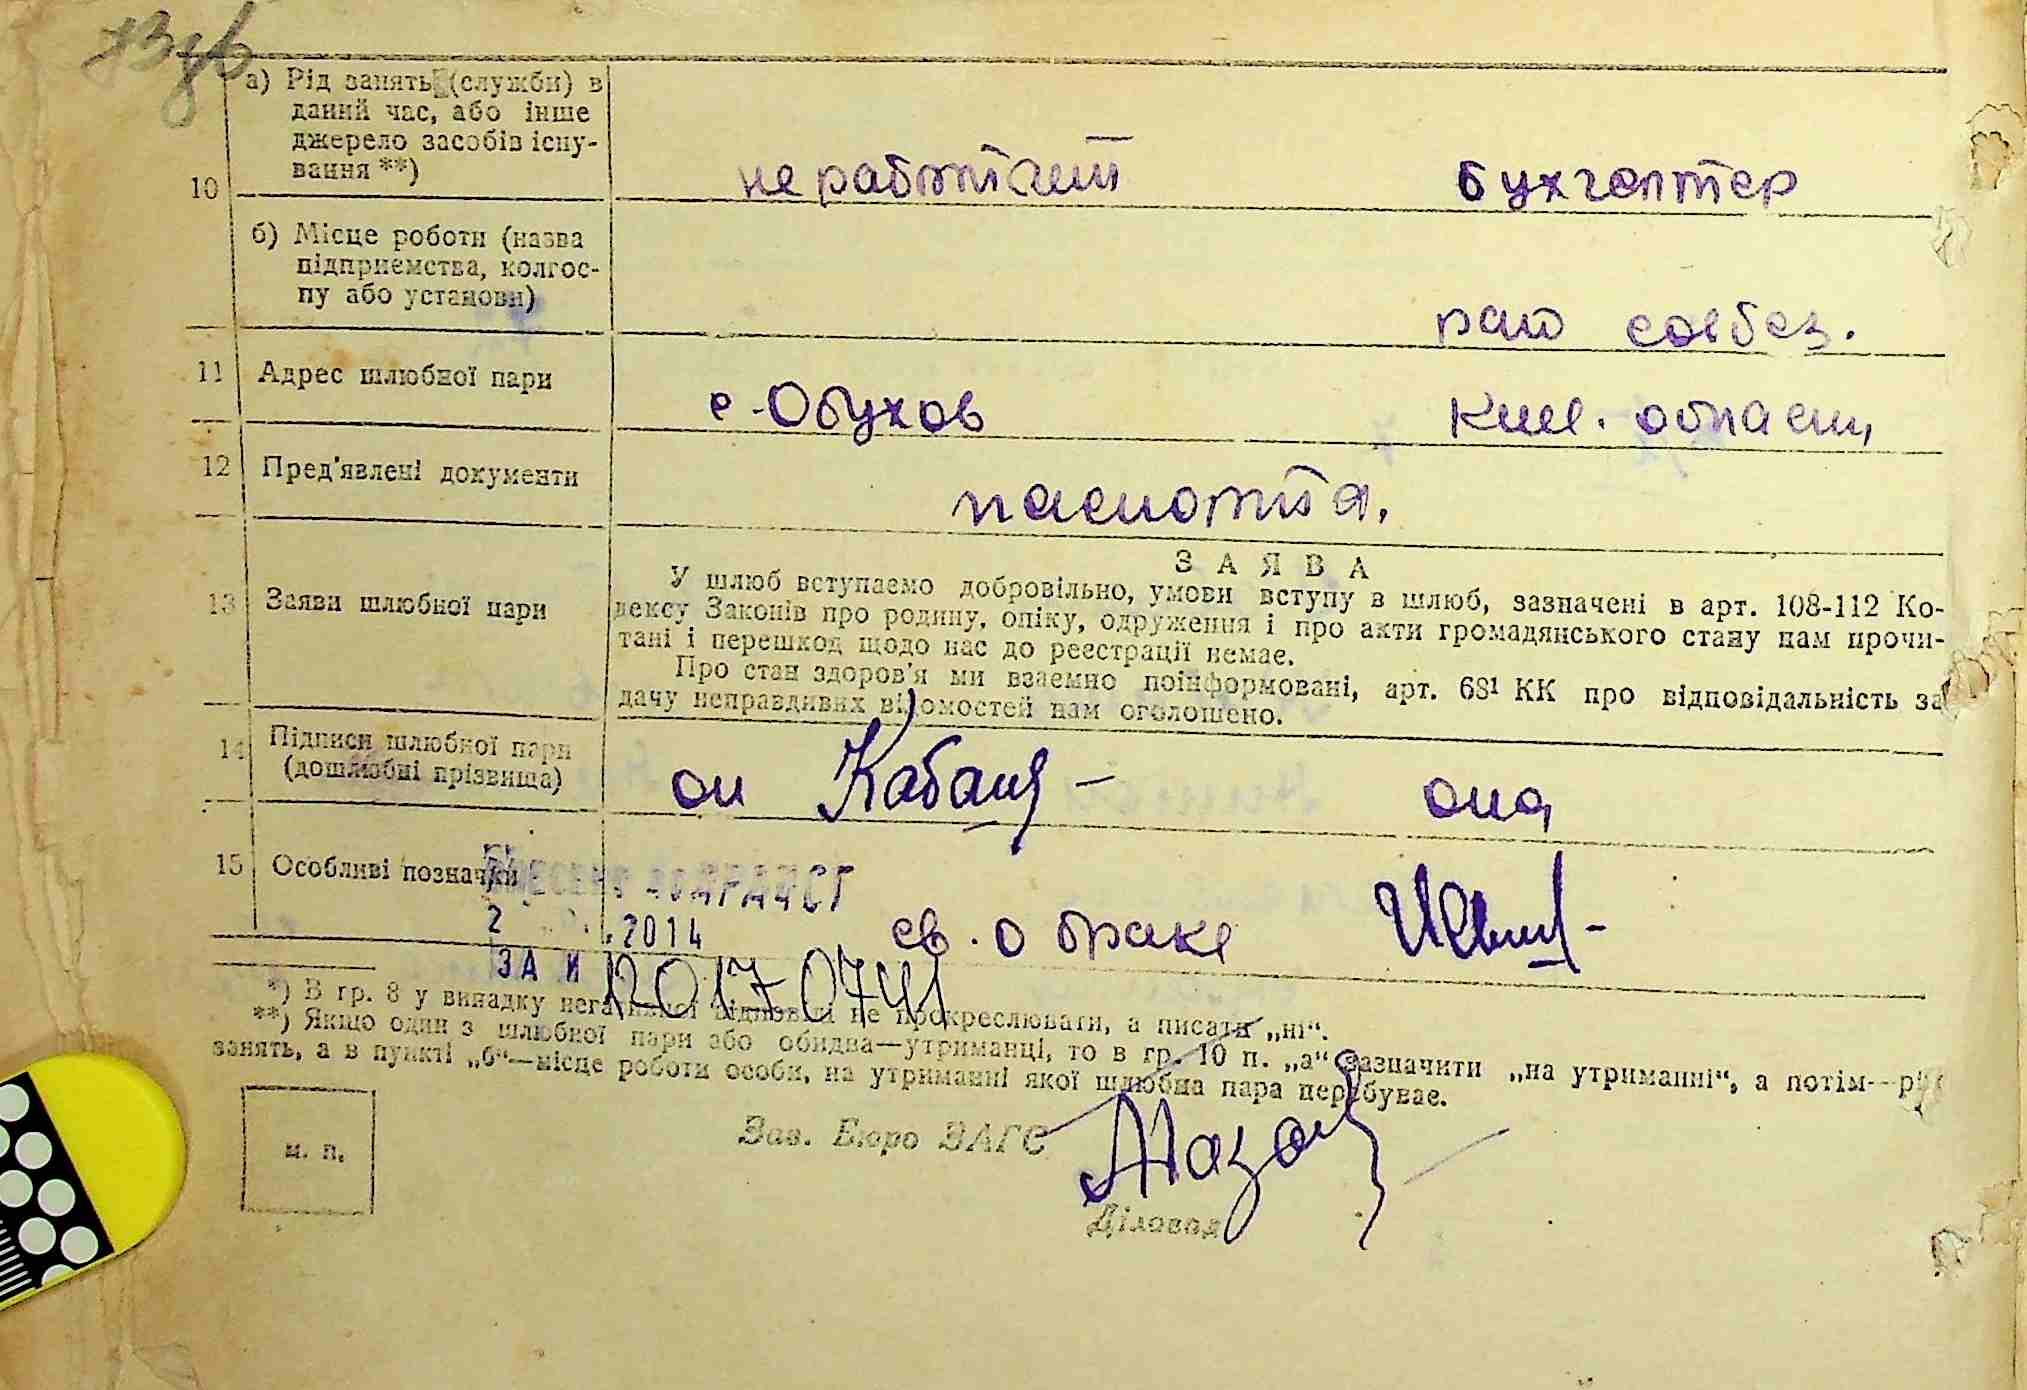 73 зв
а) Рід занять (служби) в
даний час, або інше
джерело засобів існу-
вання **)
не работает
бухгалтер
10
б) Місце роботи (назва
підприємства, колгос-
пу або установи)
рай собез.
11 Адрес шлюбної пари
с. Обухов
Киев. области
12 Пред'явлені документи
паспорта.
13 Заяви шлюбної пари
ЗАЯВА
У шлюб вступаємо добровільно, умови вступу в шлюб, зазначені в арт. 108-112 Ко-
дексу Законів про родину, опіку, одруження і про акти громадянського стану нам прочи-
тані і перешкод щодо нас до реєстрації немає.
Про стан здоров'я ми взаємно поінформовані, арт. 68¹ КК про відповідальність за
дачу неправдивих відомостей нам оголошено.
14 Підписи шлюбної пари
(дошлюбні прізвища)
он
она
15 Особливі позначки
2 .2014
ЗА И 120170741
св. о браке
*) В гр. 8 у випадку негативної відповіді не прокреслювати, а писати „ні“.
**) Якщо один з шлюбної пари або обидва—утриманці, то в гр. 10 п. „а“ зазначити „на утриманні“, а потім—рід
занять, а в пункті „б“—місце роботи особи, на утриманні якої шлюбна пара перебуває.
м. п.
Зав. Бюро ЗАГС
Діловод